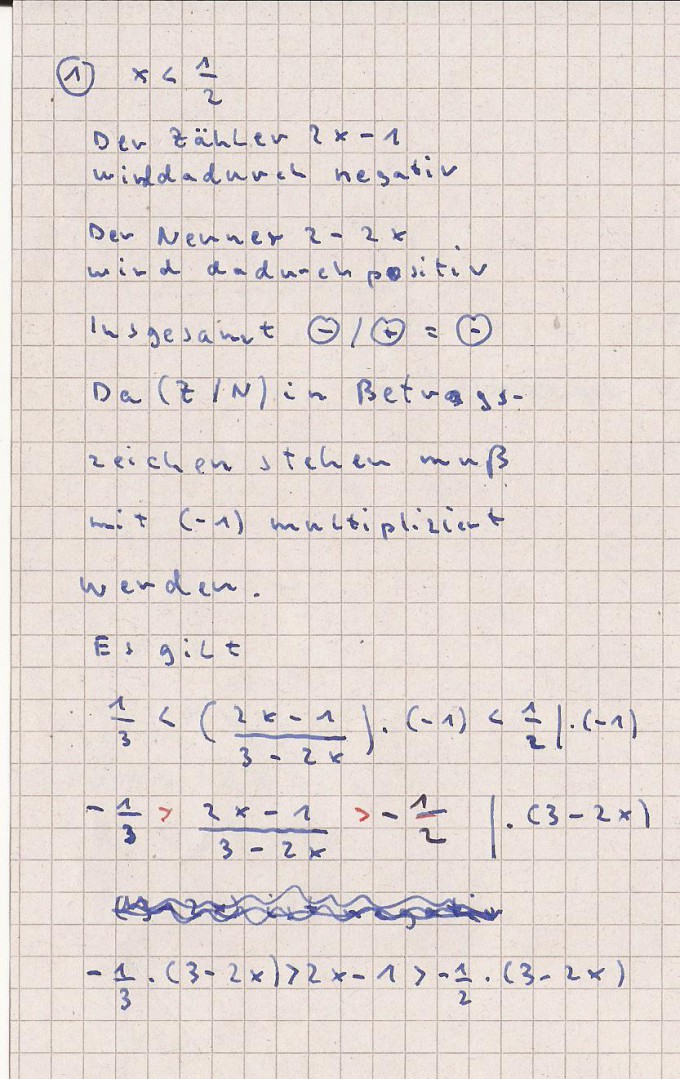 ① x < 1/2
Der Zähler 2x-1
wird dadurch negativ
Der Nenner 2-2x
wird dadurch positiv
Insgesamt ⊖/⊕ = ⊖
Da (Z/N) in Betrags-
zeichen stehen muß
mit (-1) multipliziert
werden.
Es gilt
1/3 < ((2x-1)/(3-2x)) · (-1) < 1/2 | · (-1)
-1/3 > (2x-1)/(3-2x) > -1/2 | · (3-2x)
-1/3 · (3-2x) > 2x-1 > -1/2 · (3-2x)